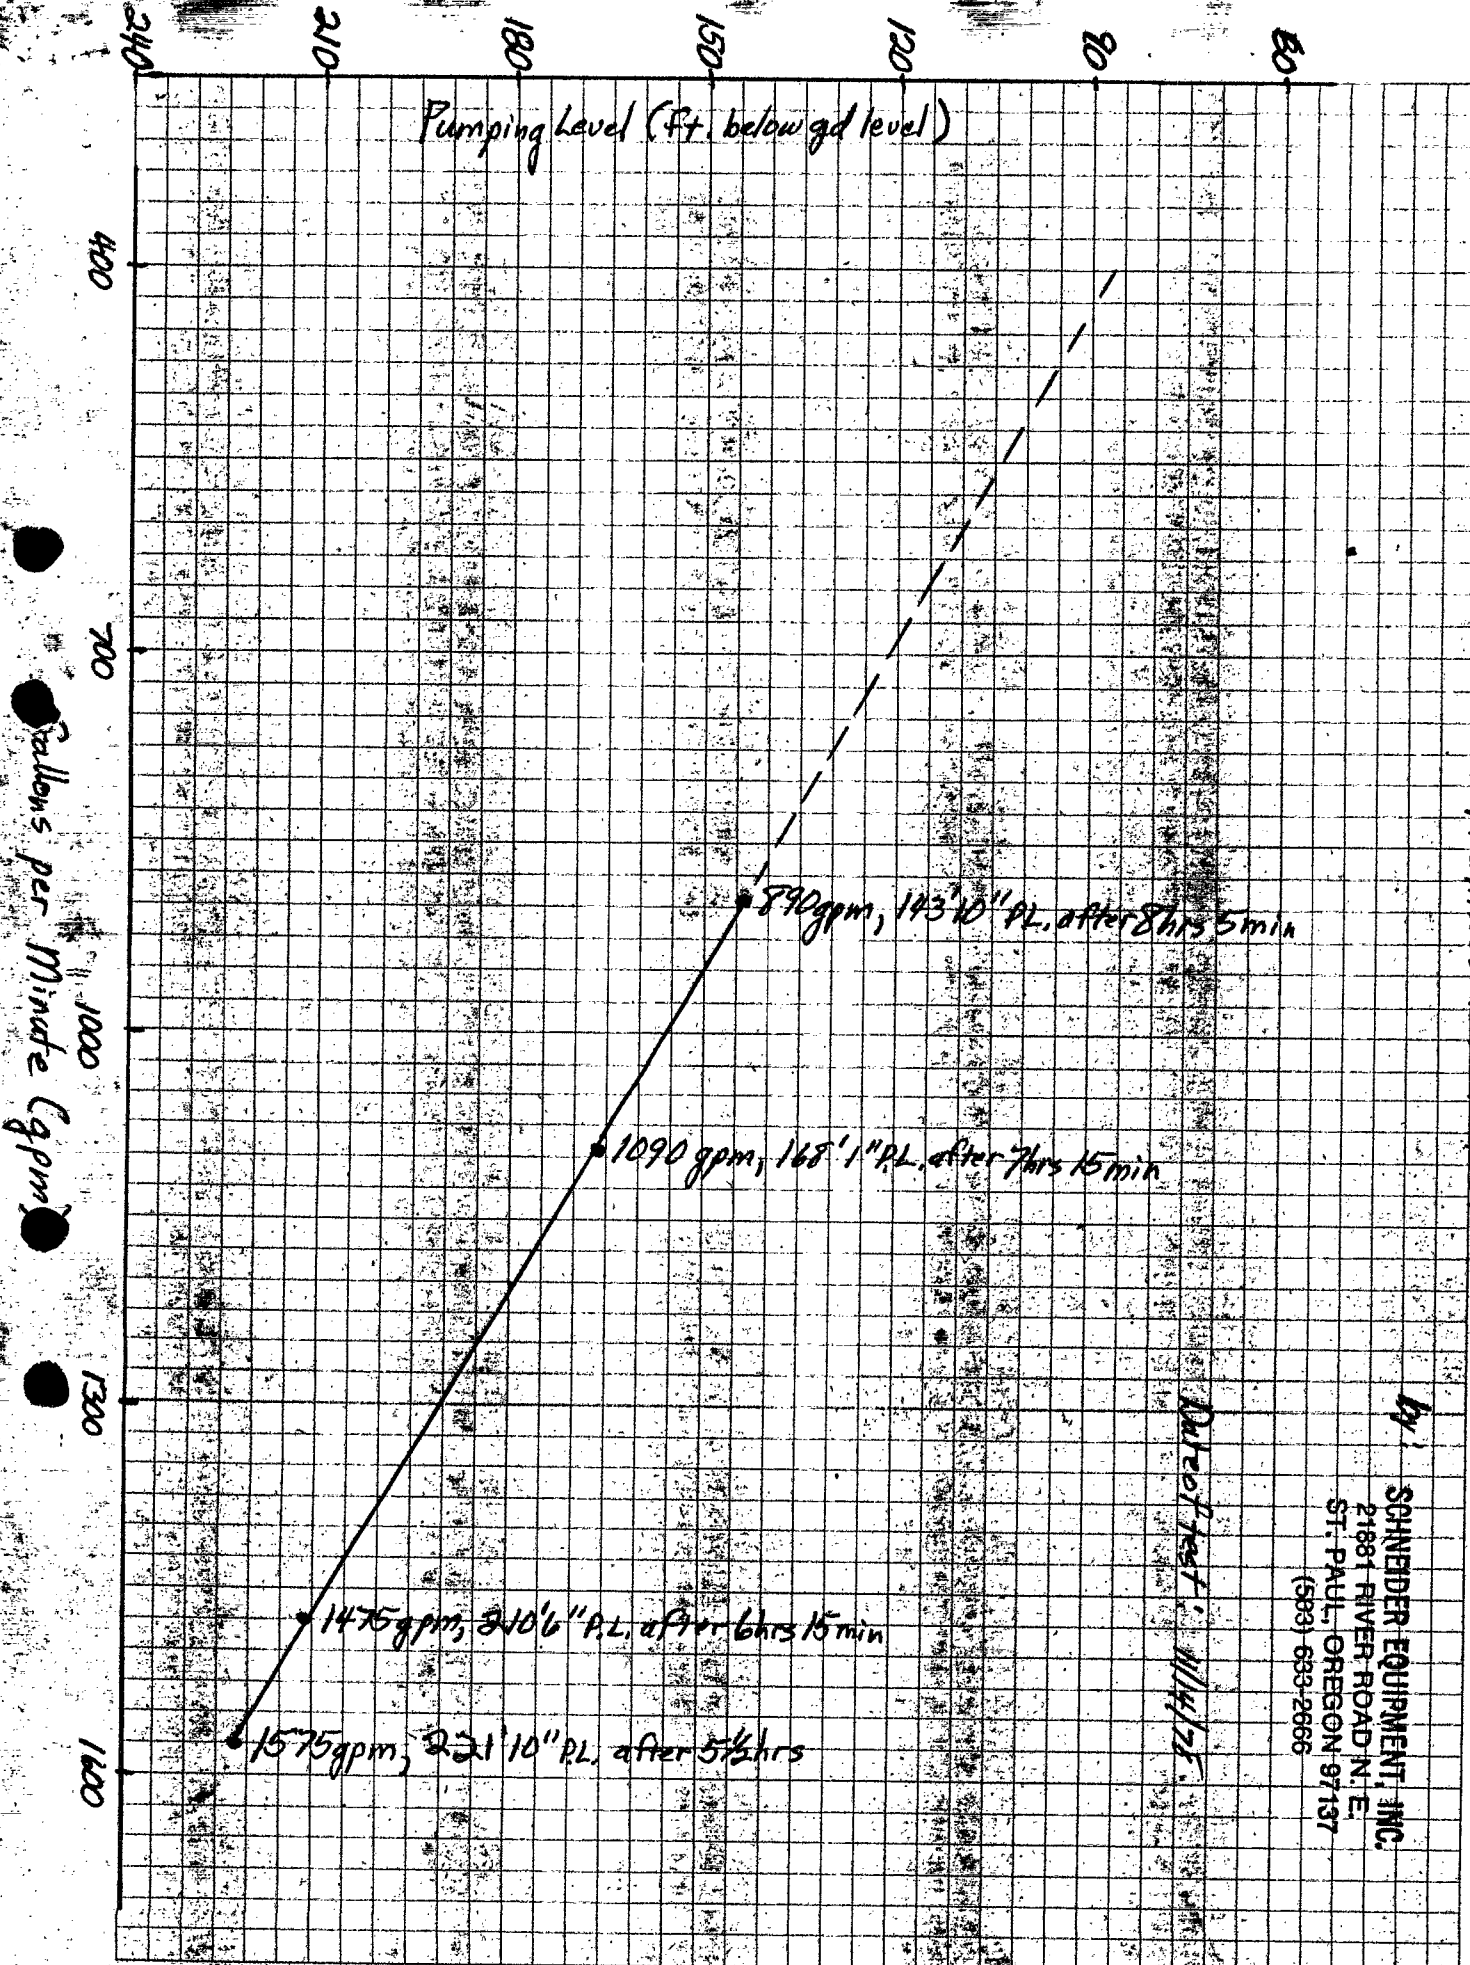 240
210
180
150
120
90
60
Pumping Level (ft. below gd level)
400
700
1000
1300
1600
Gallons per Minute (gpm)
890gpm, 143'10" P.L. after 8hrs 5min
1090 gpm, 168'1" P.L. after 7hrs 15min
1475gpm, 210'6" P.L. after 6hrs 15min
1575gpm, 221'10" P.L. after 5½hrs
Date of test: 11/14/78
by: SCHNEIDER EQUIPMENT, INC.
21881 RIVER ROAD N. E.
ST. PAUL, OREGON 97137
(503) 633-2666